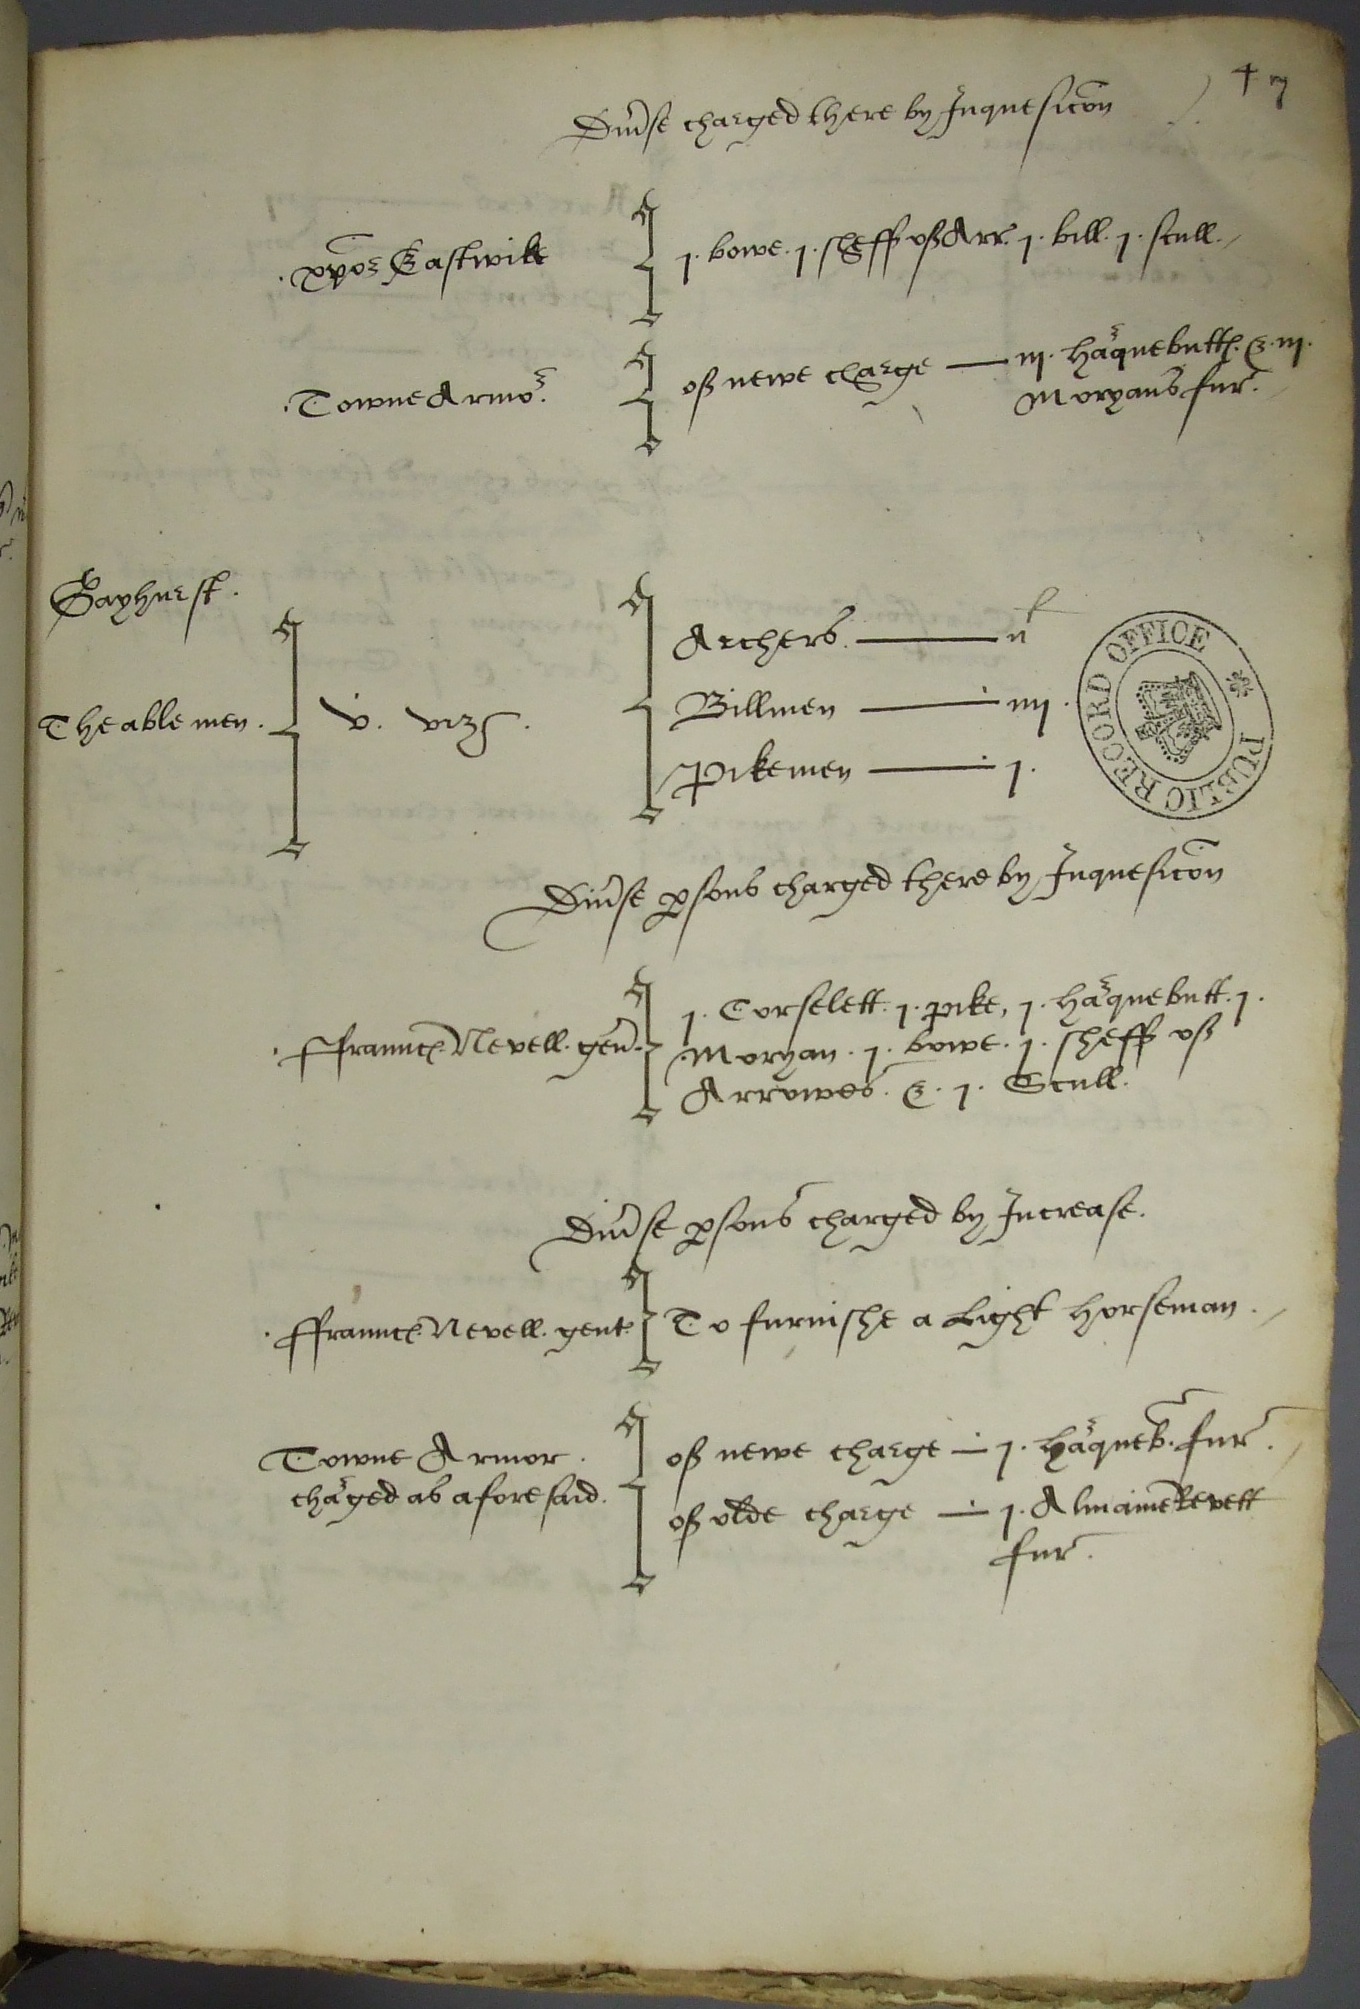 Div'se charged there by Inquesic̃on
xp̃o₃ Eastwike
j. bowe. j. sheff of Arr. j. bill. j. scull.
Towne Armor.
of newe charge — iij. harquebutt(es). & iij.
Moryans fur'.
Gayhurst.
Archers. — ij
The able men.
v. viz.
Billmen — iiij.
Pikemen — j.
PUBLIC RECORD OFFICE
Div'se p'sons charged there by Inquesic̃on
ffraunc(es) Nevell. gen̄.
j. Corselett. j. pike, j. harquebutt. j.
Moryan. j. bowe. j. sheff of
Arrowes. & j. Scull.
Div'se p'sons charged by Increase.
ffraunc(es) Nevell. gent.
To furnishe a Light horseman.
Towne Armor.
charged as aforesaid.
of newe charge — j. harqueb'. fur'.
of olde charge — j. Almaine Revett
fur'.